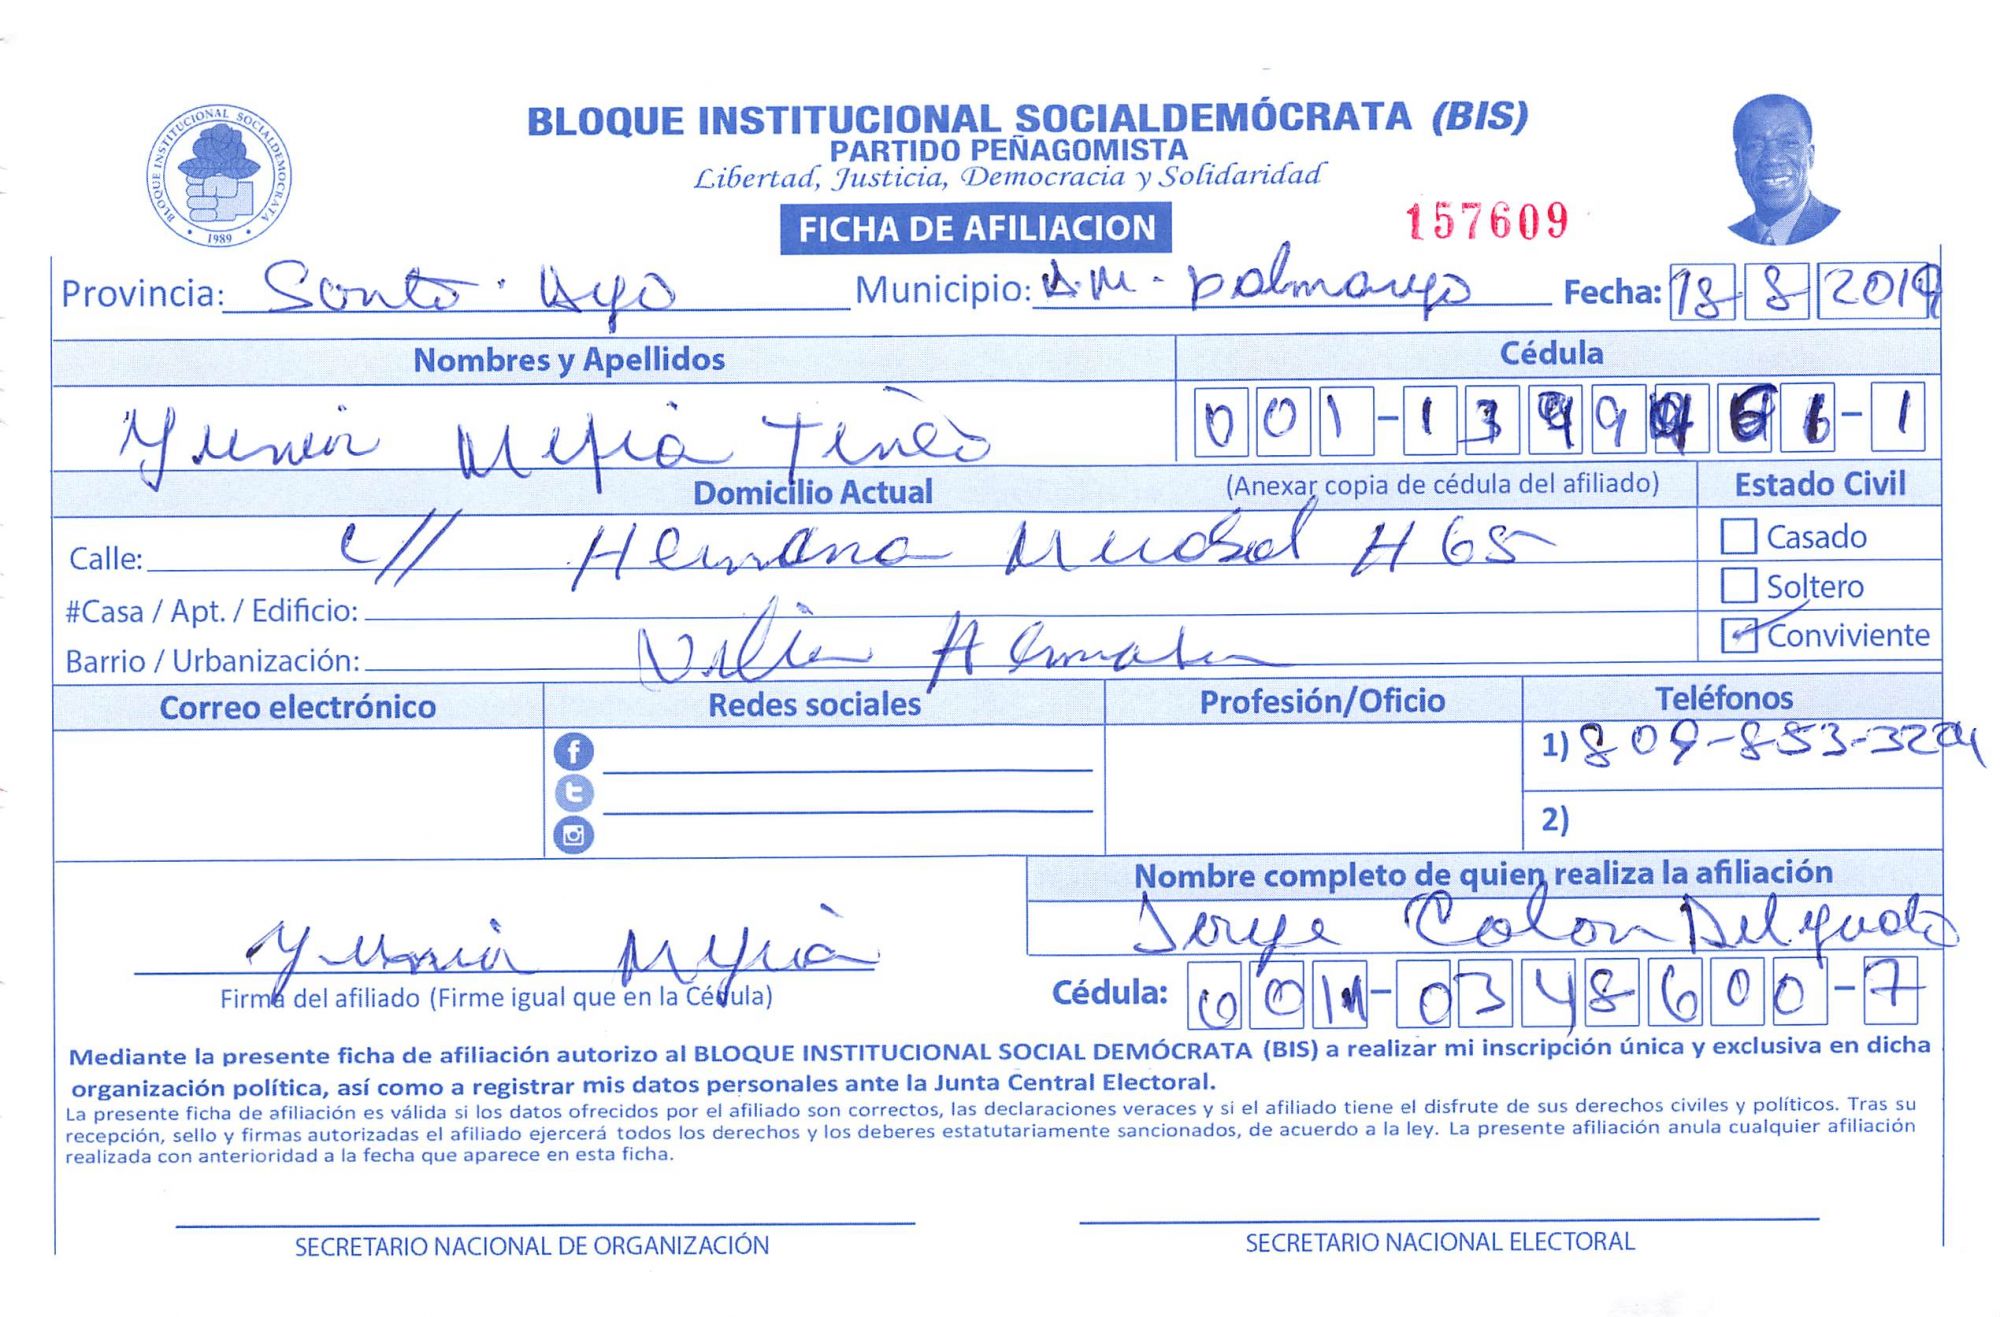 BLOQUE INSTITUCIONAL SOCIALDEMÓCRATA (BIS)
PARTIDO PEÑAGOMISTA
Libertad, Justicia, Democracia y Solidaridad
BLOQUE INSTITUCIONAL SOCIALDEMOCRATA
1989
FICHA DE AFILIACION
157609
Provincia: Santo Dgo Municipio: Fecha: 18 8 2019
Nombres y Apellidos Cédula
Mejia 001-13
Domicilio Actual (Anexar copia de cédula del afiliado) Estado Civil
Calle: c// Hermana H 65 Casado
#Casa / Apt. / Edificio: Soltero
Barrio / Urbanización: Villa Conviviente
Correo electrónico Redes sociales Profesión/Oficio Teléfonos
1) 809-853-
2)
Nombre completo de quien realiza la afiliación
Jorge Colon Delgado
Mejia
Firma del afiliado (Firme igual que en la Cédula) Cédula: 001-0348600-7
Mediante la presente ficha de afiliación autorizo al BLOQUE INSTITUCIONAL SOCIAL DEMÓCRATA (BIS) a realizar mi inscripción única y exclusiva en dicha
organización política, así como a registrar mis datos personales ante la Junta Central Electoral.
La presente ficha de afiliación es válida si los datos ofrecidos por el afiliado son correctos, las declaraciones veraces y si el afiliado tiene el disfrute de sus derechos civiles y políticos. Tras su
recepción, sello y firmas autorizadas el afiliado ejercerá todos los derechos y los deberes estatutariamente sancionados, de acuerdo a la ley. La presente afiliación anula cualquier afiliación
realizada con anterioridad a la fecha que aparece en esta ficha.
SECRETARIO NACIONAL DE ORGANIZACIÓN SECRETARIO NACIONAL ELECTORAL